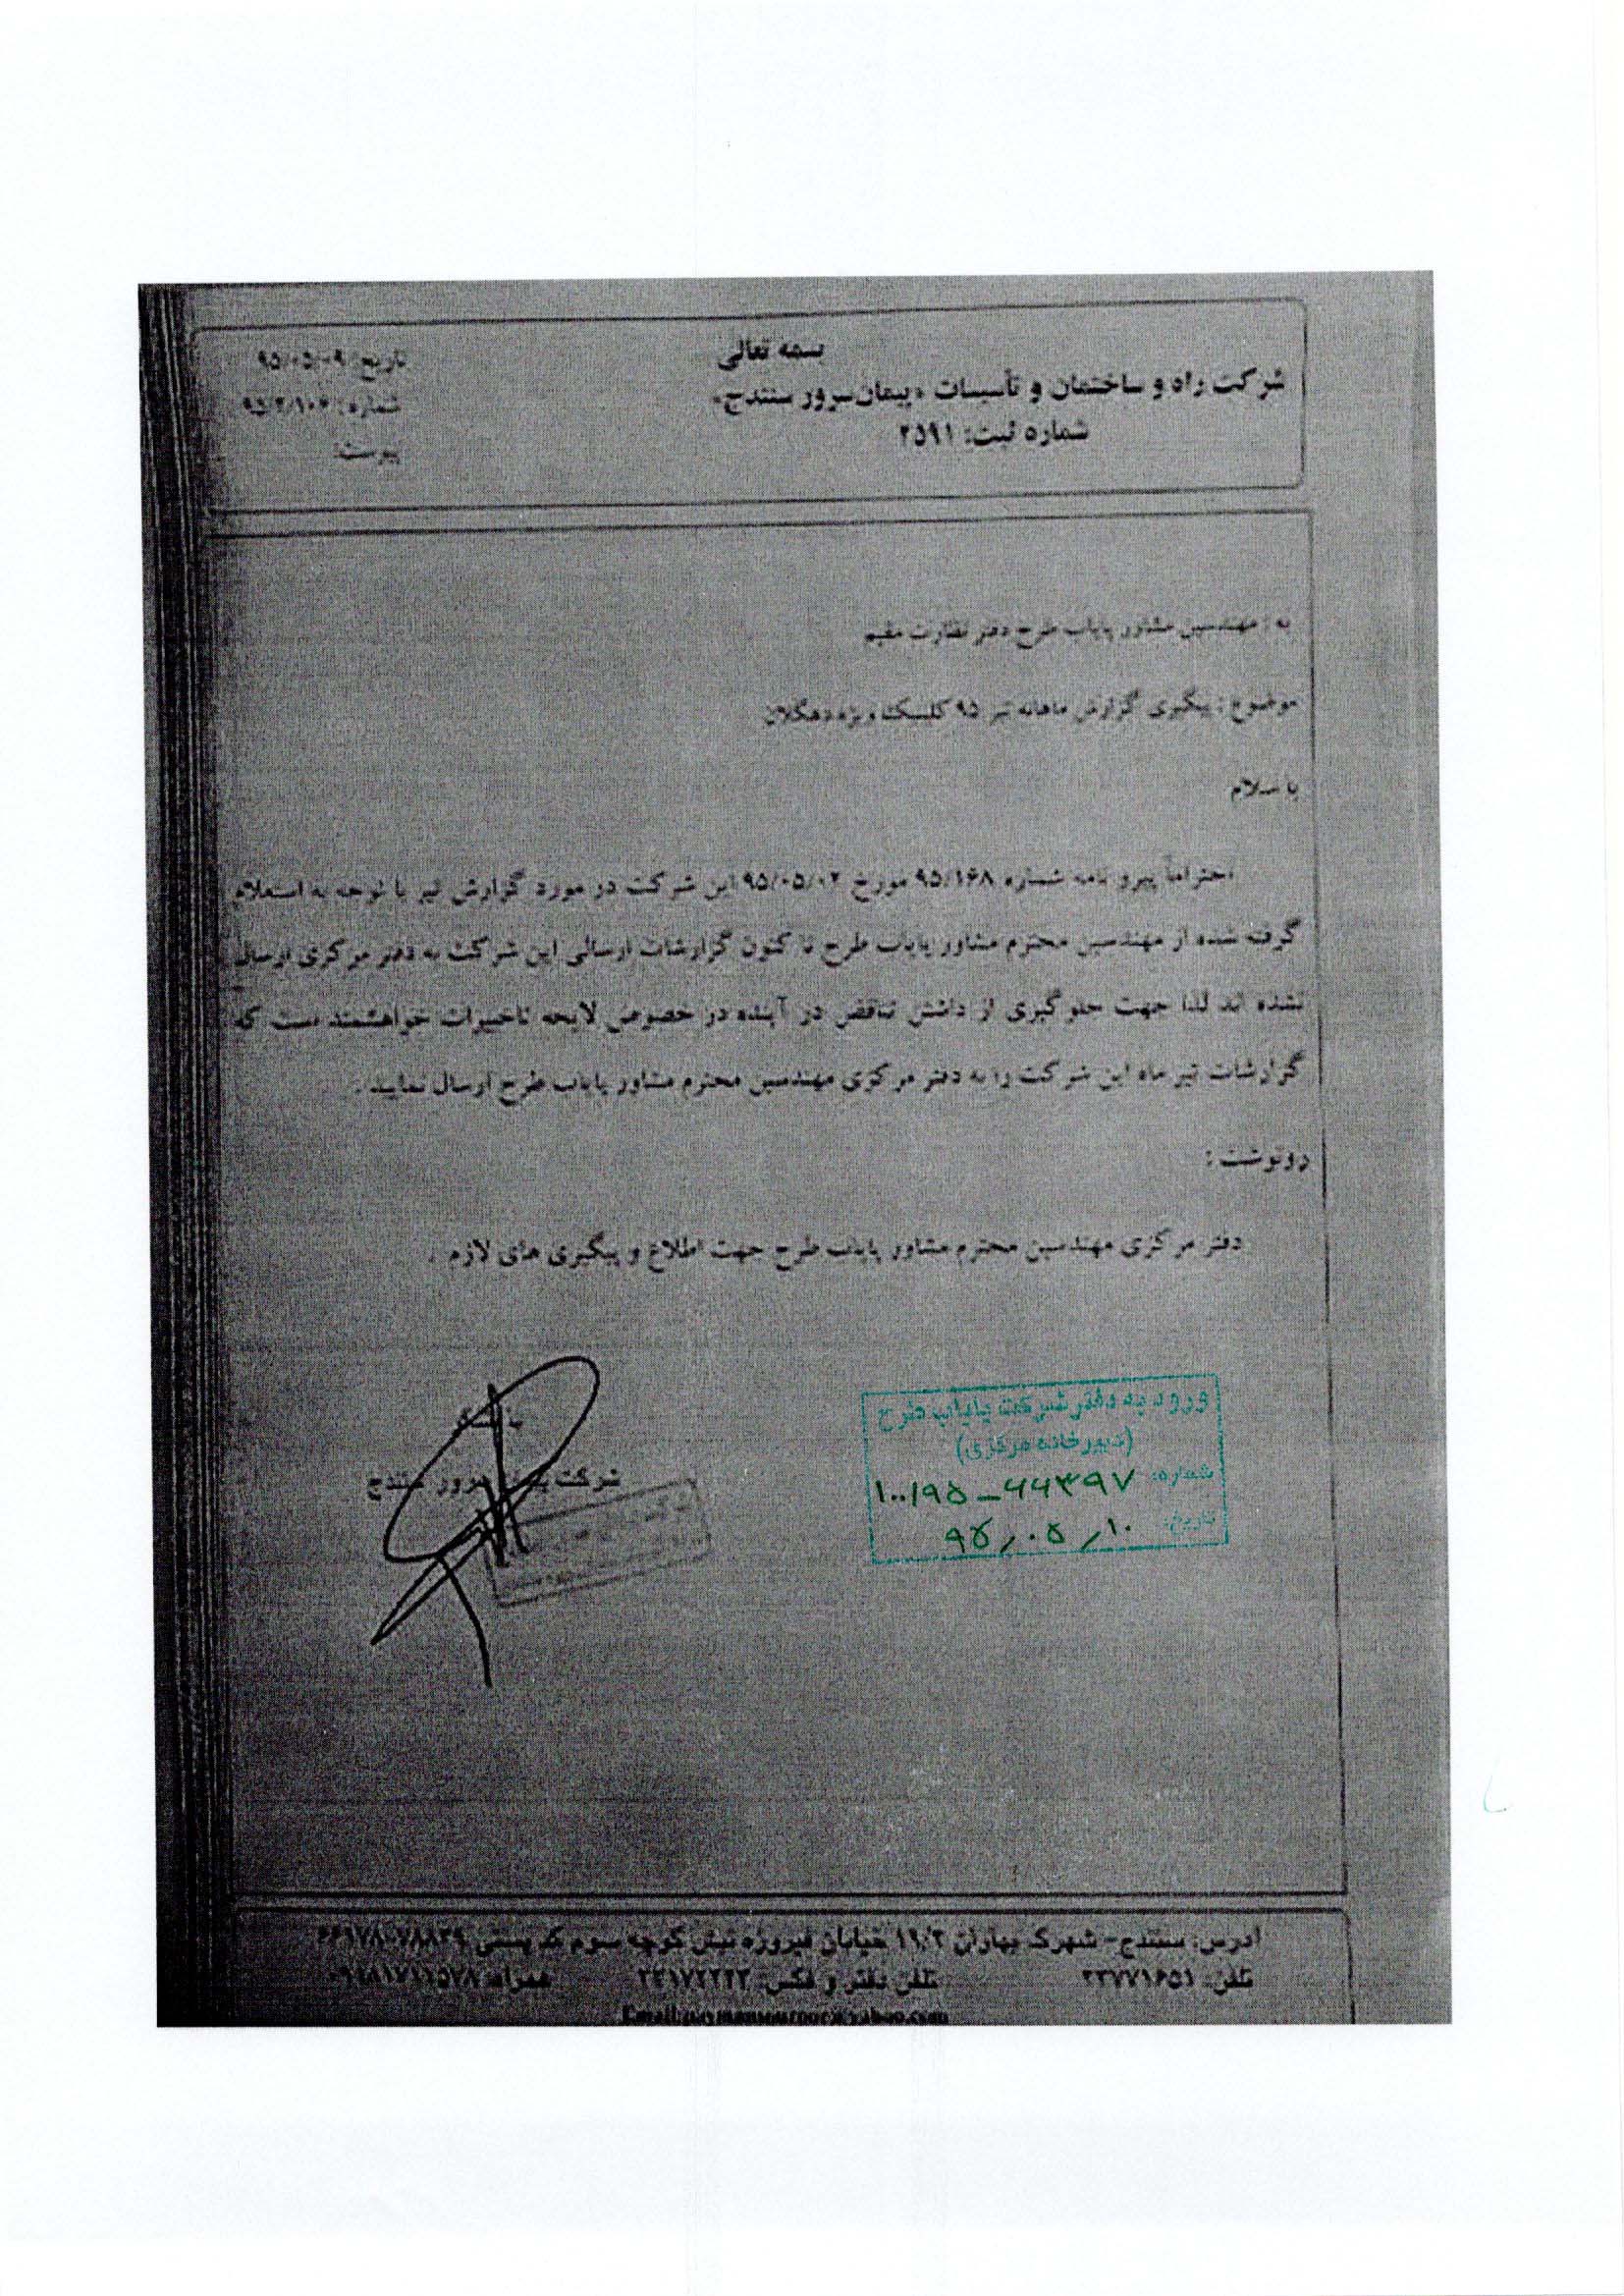 بسمه تعالی
شرکت راه و ساختمان و تأسیسات «پیمان سرور سنندج»
شماره ثبت: ۲۵۹۱
تاریخ: ۹۵/۰۵/۰۹
شماره:
پیوست:
به : مهندسین مشاور پایاب طرح دفتر نظارت مقیم
موضوع : پیگیری گزارش ماهانه تیر ۹۵ ویژه دهگلان
با سلام
احتراماً پیرو نامه شماره ۹۵/۱۶۸ مورخ ۹۵/۰۵/۰۲ این شرکت در مورد گزارش تیر با توجه به استعلام
گرفته شده از مهندسین محترم مشاور پایاب طرح تا کنون گزارشات ارسالی این شرکت به دفتر مرکزی ارسال
نشده اند لذا جهت جلوگیری از داشتن تناقض در آینده در خصوص لایحه تاخیرات خواهشمند است که
گزارشات تیر ماه این شرکت را به دفتر مرکزی مهندسین محترم مشاور پایاب طرح ارسال نمایید .
رونوشت :
دفتر مرکزی مهندسین محترم مشاور پایاب طرح جهت اطلاع و پیگیری های لازم .
با تشکر
شرکت پیمان سرور سنندج
ورود به دفتر شرکت پایاب طرح
(دبیرخانه مرکزی)
شماره: ۱۰۰/۹۵-۶۶۳۹۷
تاریخ: ۹۵/۰۵/۱۰
آدرس: سنندج- شهرک بهاران خیابان فیروزه نبش کوچه سوم کد پستی
تلفن: ۳۳۷۷۱۶۵۱ تلفن دفتر و فکس: همراه: